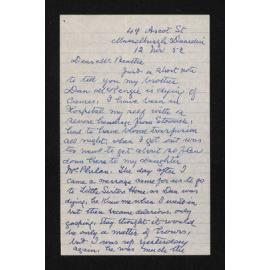 49 Ascot St
Musselburgh Dunedin
12 Nov 52
Dear Mr Beattie
Just a short note
to tell you my brother
Dan McKenzie is dying of
Cancer. I have been in
Hospital my self with a
severe hemorrhage from Stomach,
had to have blood transfusion
all night, when I got out was
too weak to get about so flew
down here to my daughter
Mrs Phelan. The day after I
came a message came for us to go
to Little Sisters Home, as Dan was
dying, he knew me when I went in
but then became delirious, only
gasping, they thought it would
be only a matter of hours,
but I was up yesterday
again, he was much the